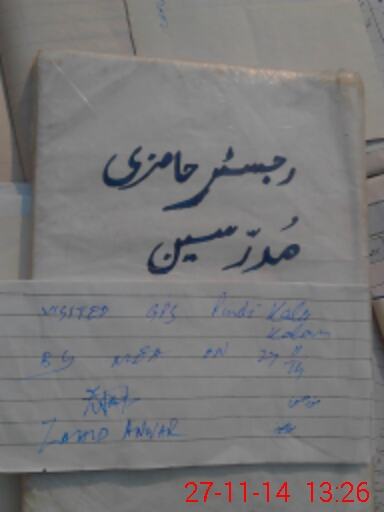 رجسٹر حاضری
مدرسین
VISITED GPS Pindi Kalu
Kalan
BY MEA ON 27 11
14
ZAHID ANWAR
27-11-14 13:26